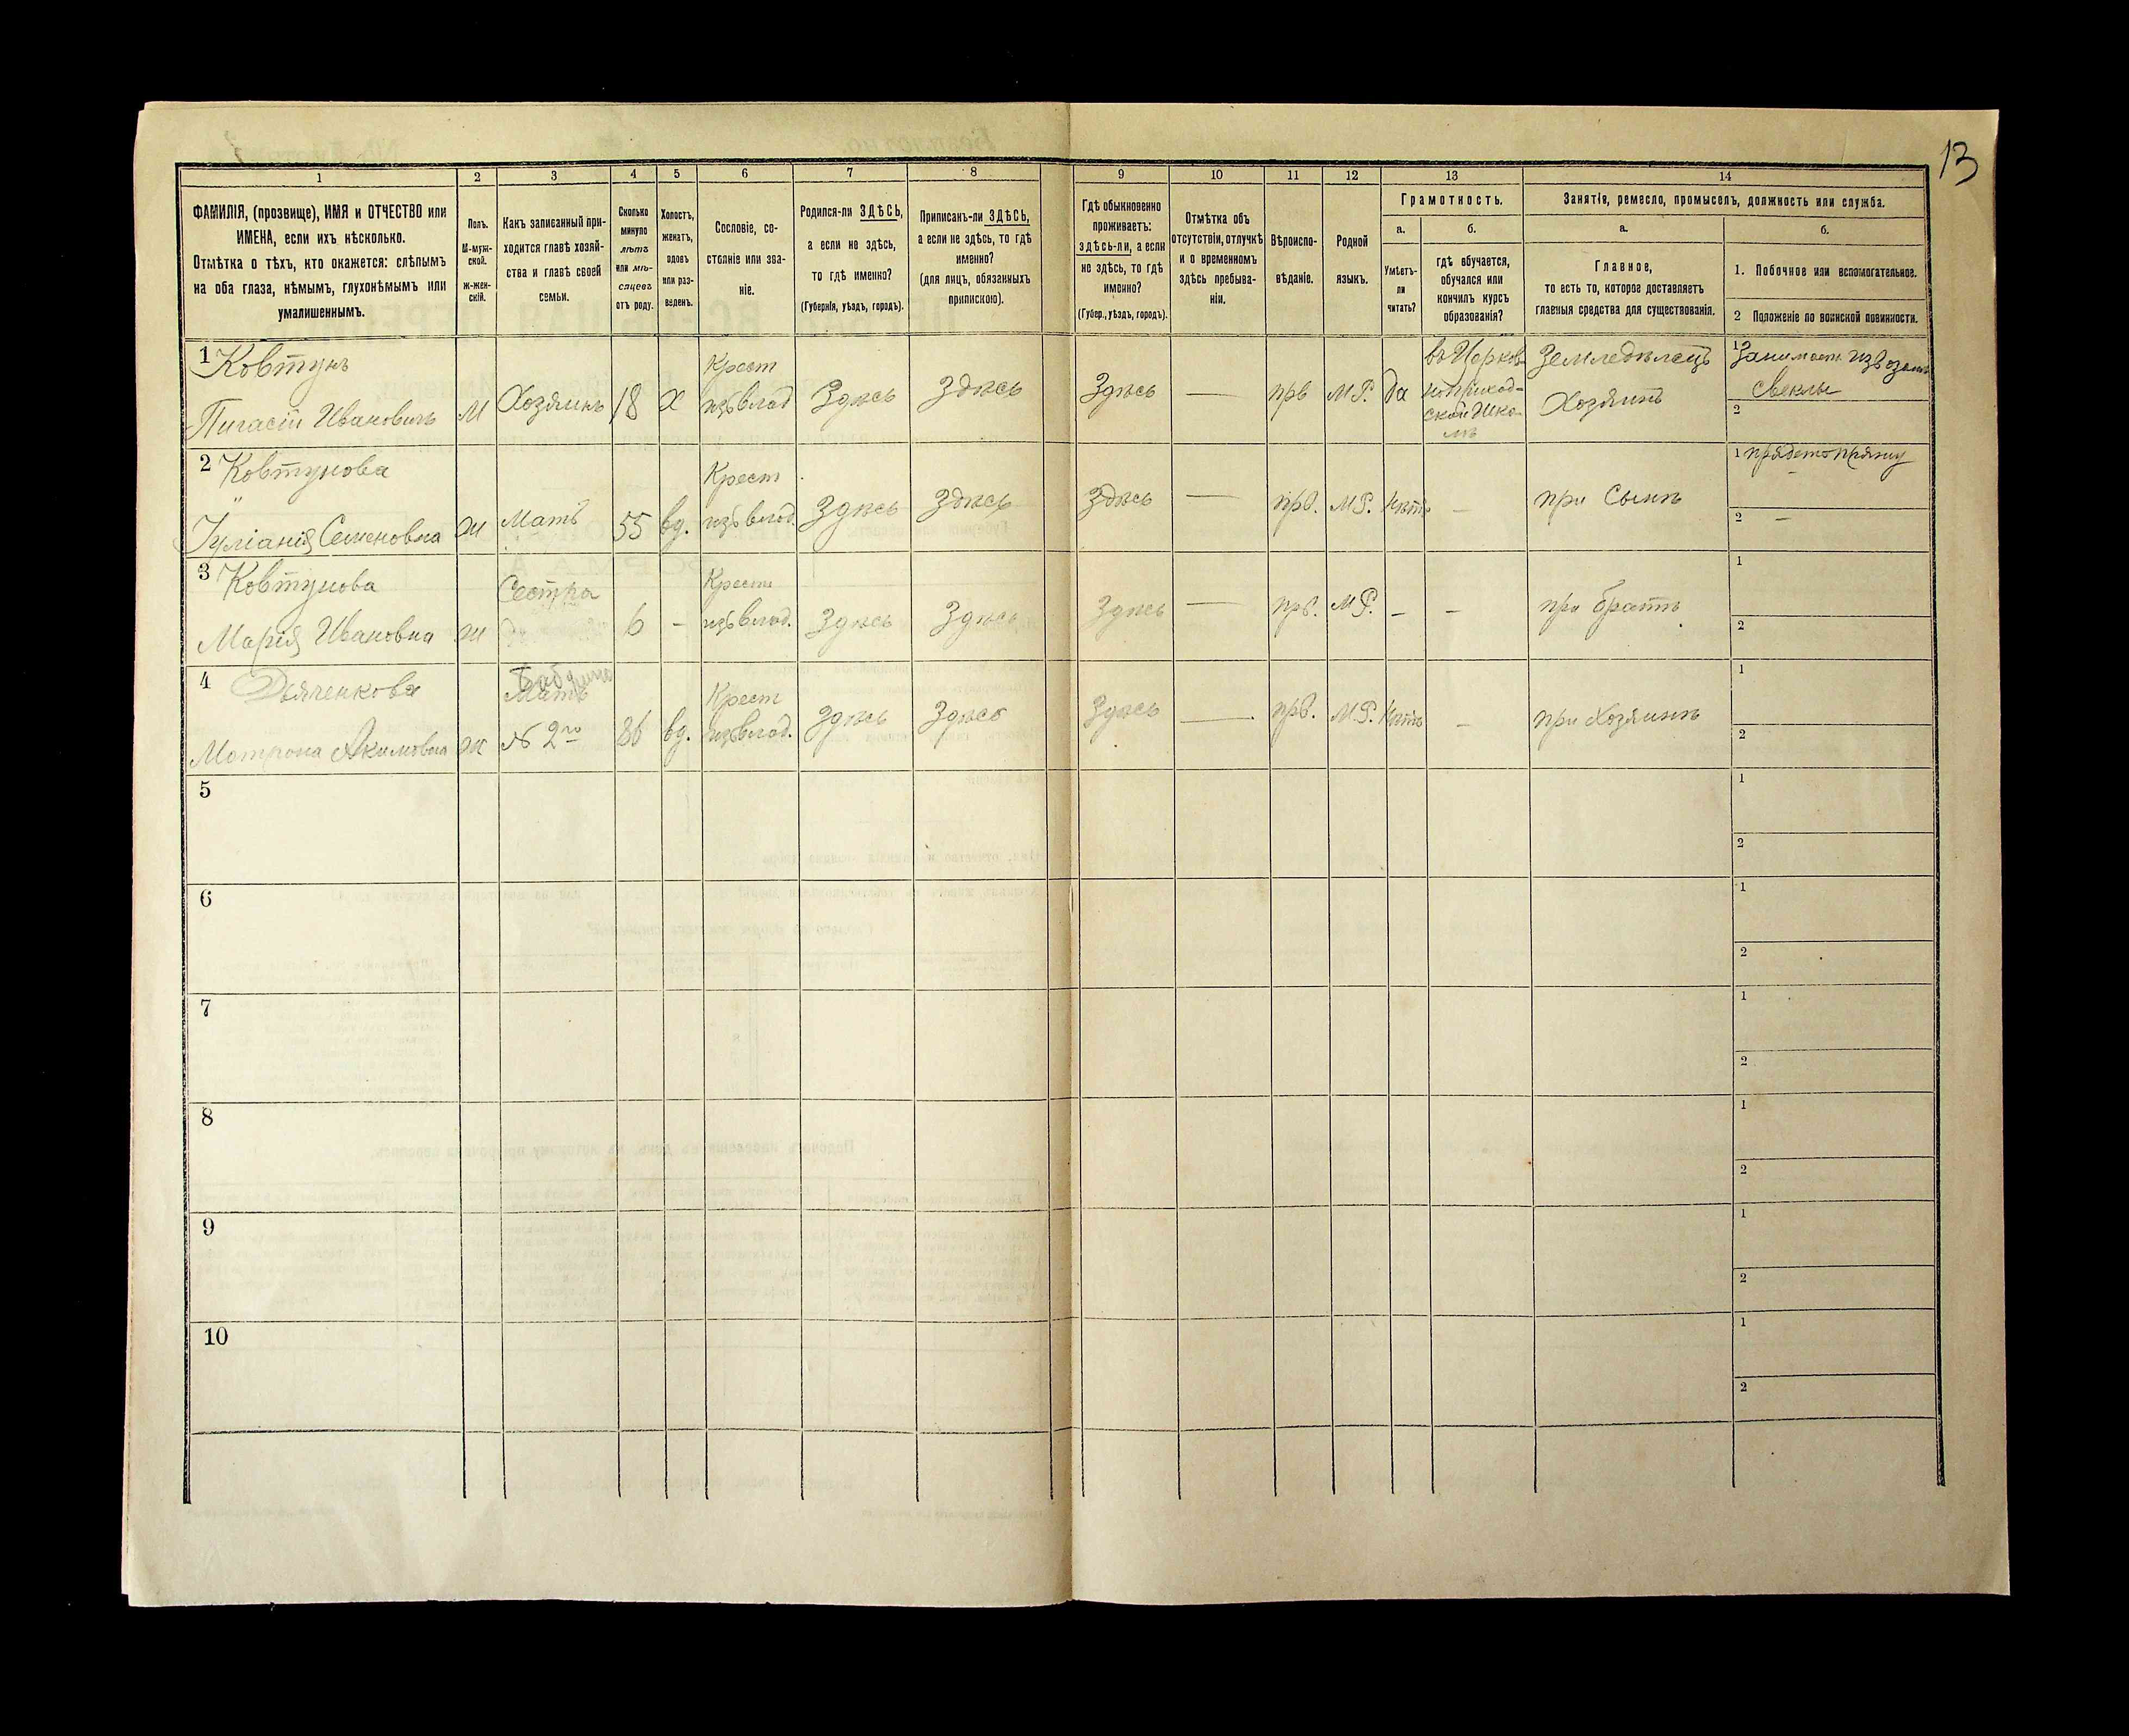 13
1
2
3
4
5
6
7
8
9
10
11
12
13
14
ФАМИЛІЯ, (прозвище), ИМЯ и ОТЧЕСТВО или
ИМЕНА, если ихъ нѣсколько.
Отмѣтка о тѣхъ, кто окажется: слѣпымъ
на оба глаза, нѣмымъ, глухонѣмымъ или
умалишеннымъ.
Полъ.
М-муж-
ской.
ж-жен-
скій.
Какъ записанный при-
ходится главѣ хозяй-
ства и главѣ своей
семьи.
Сколько
минуло
лѣтъ
или мѣ-
сяцевъ
отъ роду.
Холостъ,
женатъ,
вдовъ
или раз-
веденъ.
Сословіе, со-
стояніе или зва-
ніе.
Родился-ли ЗДѢСЬ,
а если не здѣсь,
то гдѣ именно?
(Губернія, уѣздъ, городъ).
Приписанъ-ли ЗДѢСЬ,
а если не здѣсь, то гдѣ
именно?
(для лицъ, обязанныхъ
припискою).
Гдѣ обыкновенно
проживаетъ:
здѣсь-ли, а если
не здѣсь, то гдѣ
именно?
(Губер., уѣздъ, городъ).
Отмѣтка объ
отсутствіи, отлучкѣ
и о временномъ
здѣсь пребыва-
ніи.
Вѣроиспо-
вѣданіе.
Родной
языкъ.
Грамотность.
а.
Умѣетъ-
ли
читать?
б.
гдѣ обучается,
обучался или
кончилъ курсъ
образованія?
Занятія, ремесло, промыселъ, должность или служба.
а.
Главное,
то есть то, которое доставляетъ
главныя средства для существованія.
б.
1. Побочное или вспомогательное.
2 Положеніе по воинской повинности.
1 Ковтунъ
Пигасій Ивановичъ
М
Хозяинъ
18
Х
Крест
изъ влад
Здѣсь
Здѣсь
Здѣсь
—
прв
М.Р.
да
въ Церков-
но приход-
ской Шко-
лѣ
Земледѣлецъ
Хозяинъ
1
свеклы
2
2 Ковтунова
"
Іуліанія Семеновна
ж
Мать
55
вд.
Крест
изъ влад.
Здѣсь
Здѣсь
Здѣсь
—
прв.
М.Р.
Нѣтъ
—
при Сынѣ
1 прядетъ пряжу
2 —
3 Ковтунова
Марія Ивановна
ж
Сестра
6
—
Крест
изъ влад.
Здѣсь
Здѣсь
Здѣсь
—
прв.
М.Р.
—
—
при братѣ
1
2
4 Дьяченкова
Матрона Акимовна
ж
Мать
№ 2го
86
вд.
Крест
изъ влад.
Здѣсь
Здѣсь
Здѣсь
—
прв.
М.Р.
Нѣтъ
—
при Хозяинѣ
1
2
5
1
2
6
1
2
7
1
2
8
1
2
9
1
2
10
1
2